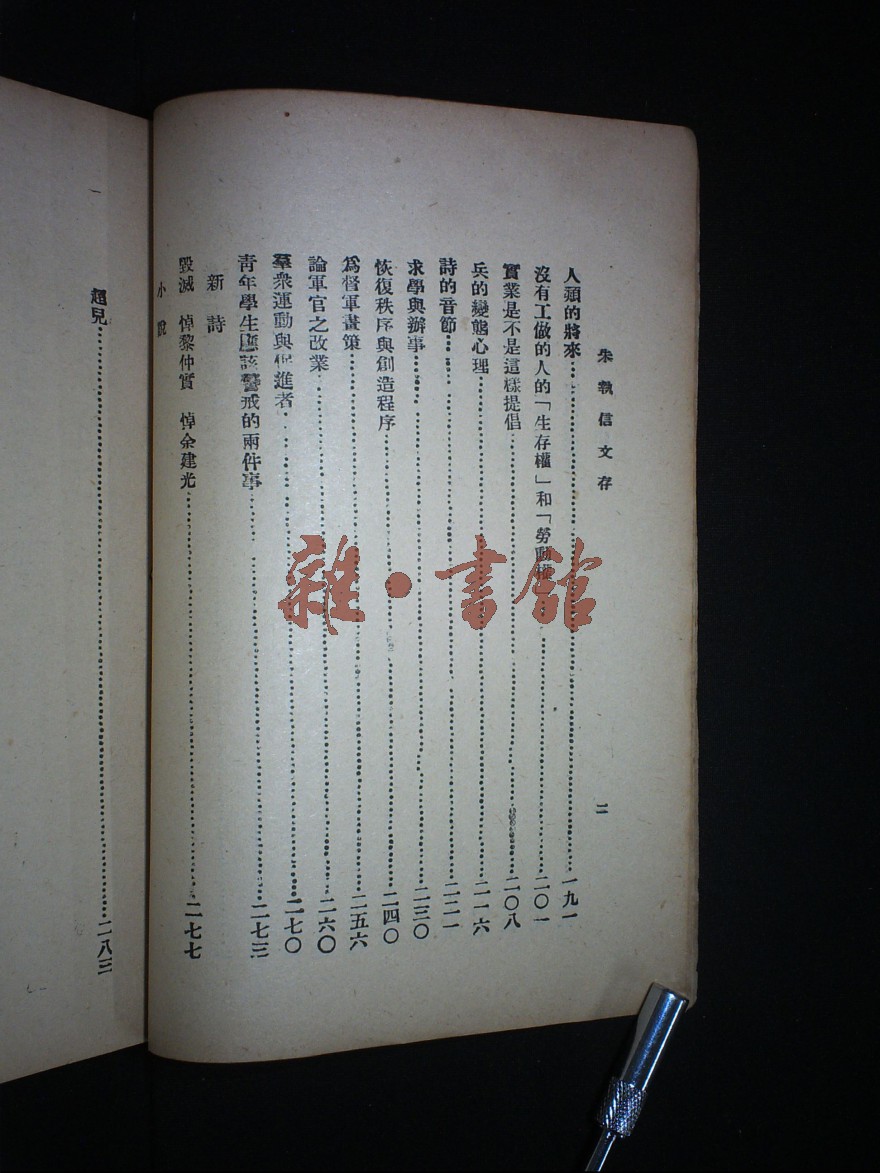 朱執信文存
二
人類的將來……一九一
沒有工做的人的「生存權」和「勞動權……二〇一
實業是不是這樣提倡……二〇八
兵的變態心理……二一六
詩的音節……二二一
求學與辦事……二三〇
恢復秩序與創造程序……二四〇
爲督軍畫策……二五六
論軍官之改業……二六〇
羣衆運動與促進者……二七〇
靑年學生應該警戒的兩件事……二七三
新詩
毀滅 悼黎仲實 悼余建光……二七七
小說
超兒……二八三
一
雜·書館